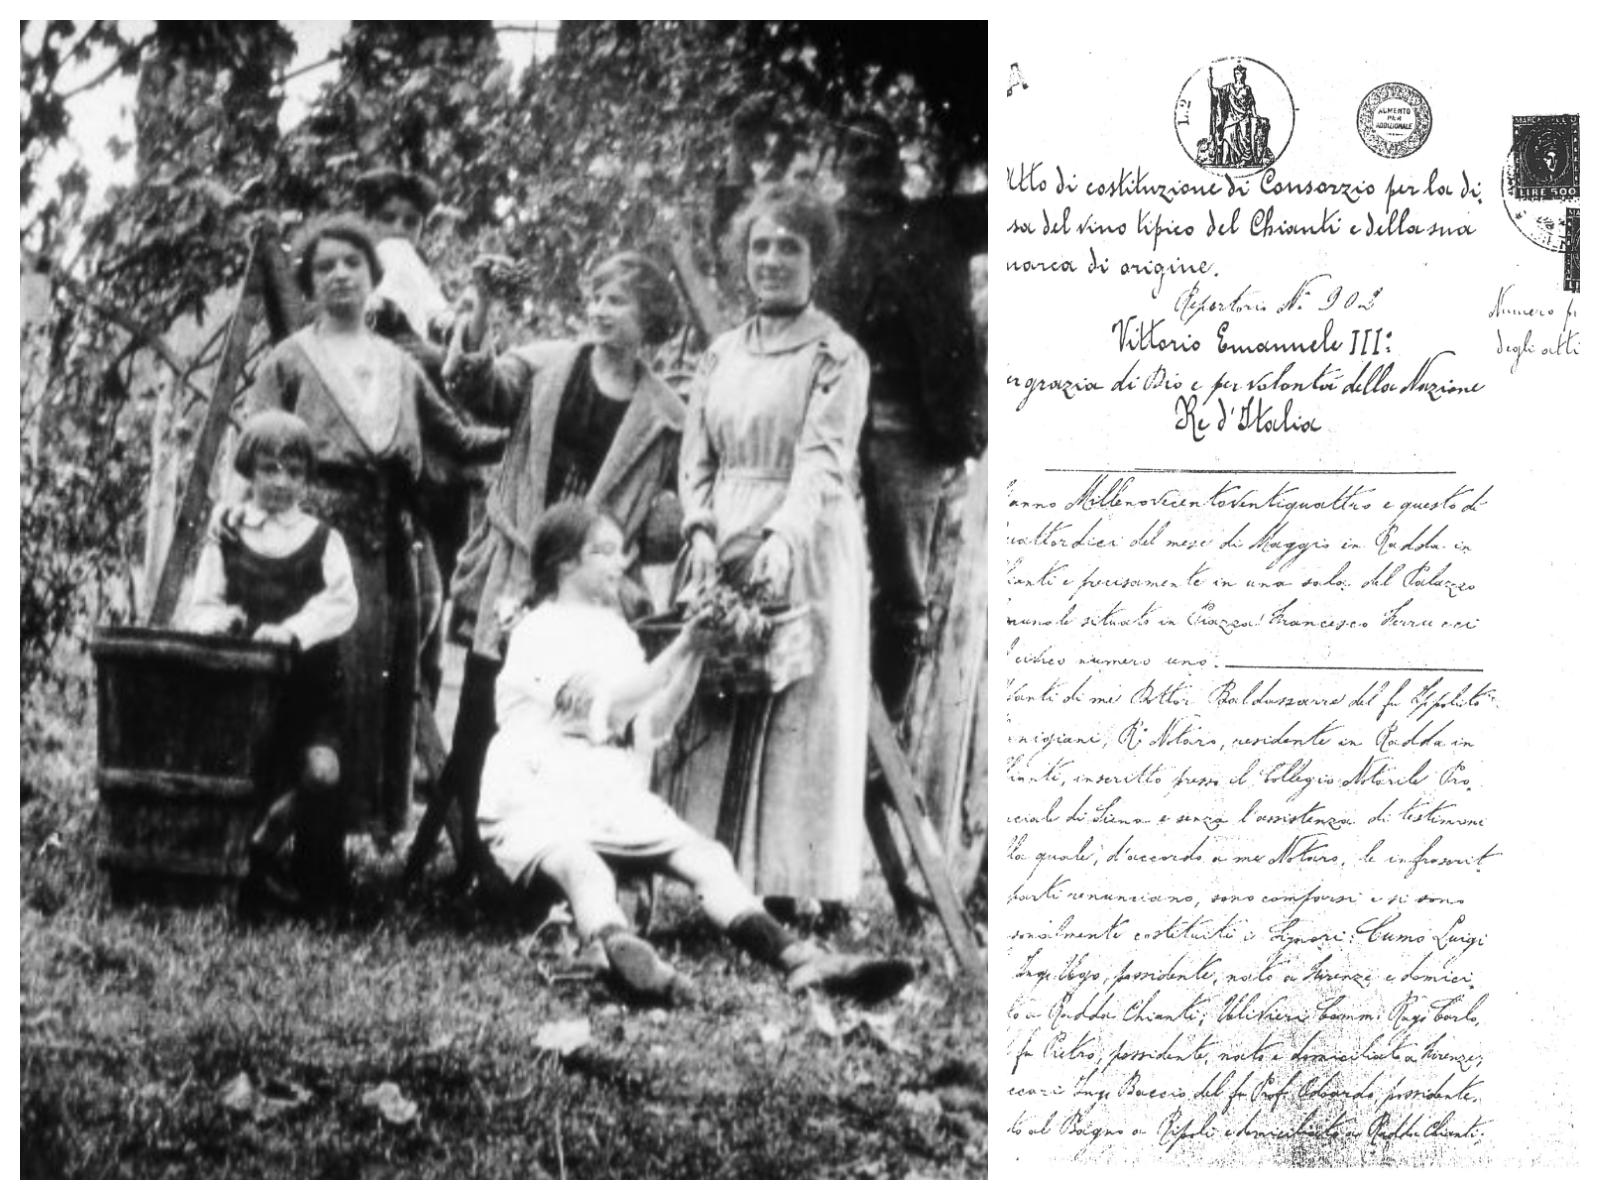 A
L.2
AUMENTO
PER
ADDIZIONALE
LIRE 500
Atto di costituzione di Consorzio per la di
sa del vino tipico del Chianti e della sua
marca di origine.
Repertorio N° 902
Numero
Vittorio Emanuele III:
degli atti
er grazia di Dio e per volontà della Nazione
Re d'Italia
anno Millenovecentoventiquattro e questo dì
uattordici del mese di Maggio in Radda in
ianti e precisamente in una sala del Palazzo
munale situato in Piazza Francesco Ferrucci
civico numero uno.
vanti di me Dottor Baldassarre del fu Ippolito
enigiani, R° Notaro, residente in Radda in
ianti, inscritto presso il Collegio Notarile Pro,
nciale di Siena e senza l'assistenza di testimoni
lla quale, d'accordo a me Notaro, le infrascrit
parti renunciano, sono comparsi e si sono
sonalmente costituiti i Signori: Luigi
Ugo, possidente, nato a Firenze e domici,
to a Radda Chianti; Carlo,
fu Pietro, possidente, nato e domiciliato a Firenze;
Baccio del fu Prof. Odoardo, possidente,
to al Bagno a Ripoli e domiciliato a Radda Chianti;